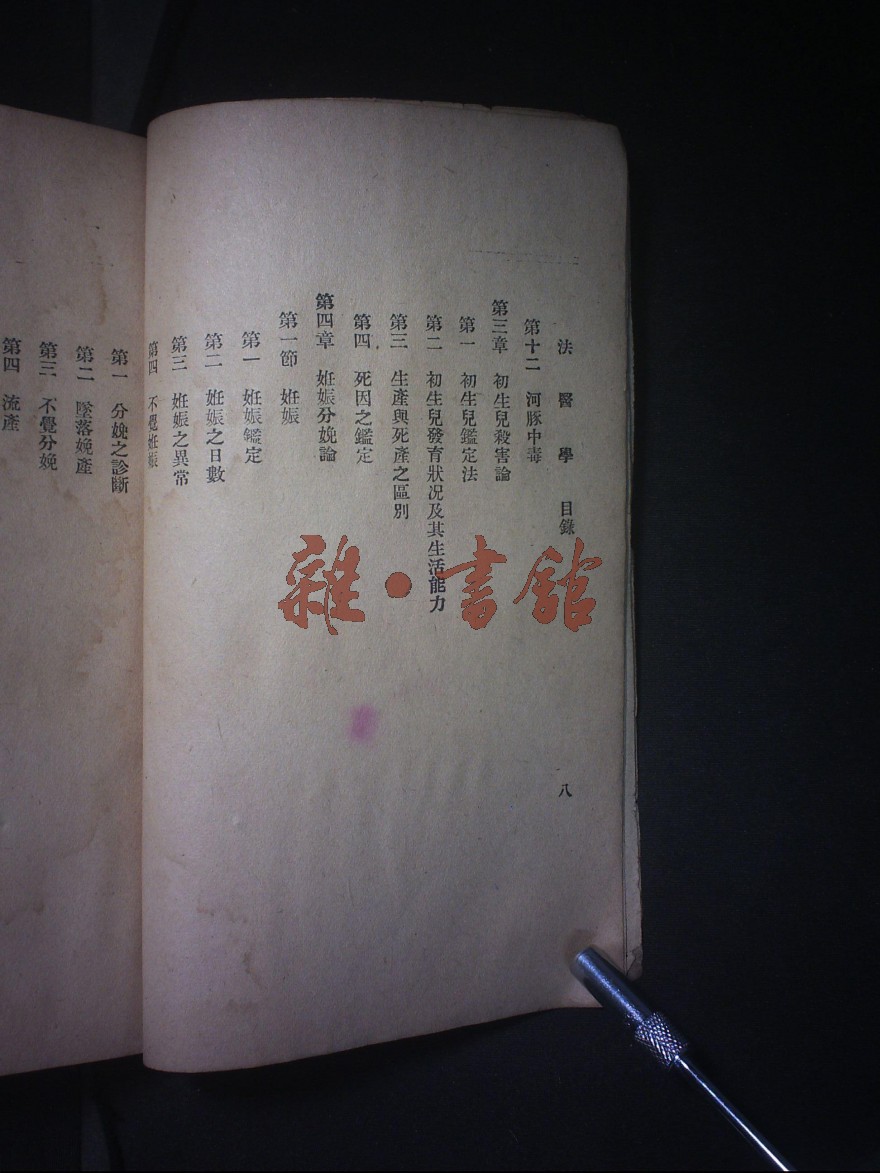 法醫學 目錄 八
第十二 河豚中毒
第三章 初生兒殺害論
第一 初生兒鑑定法
第二 初生兒發育狀况及其生活能力
第三 生產與死產之區別
第四 死因之鑑定
第四章 姙娠分娩論
第一節 姙娠
第一 姙娠鑑定
第二 姙娠之日數
第三 姙娠之異常
第四 不覺姙娠
第一 分娩之診斷
第二 墜落娩產
第三 不覺分娩
第四 流產
雜•書館